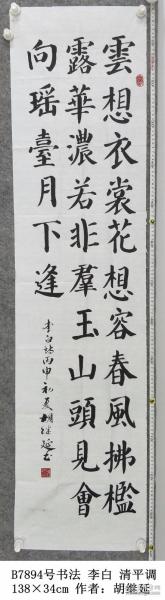 雲想衣裳花想容春風拂檻
露華濃若非羣玉山頭見會
向瑶臺月下逢
李白詩丙申初夏胡继延书
B7894号书法 李白 清平调
138×34cm 作者：胡继延